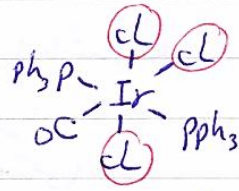 Cl Cl
Ph3P Ir
OC PPh3
Cl